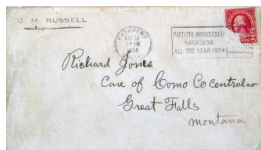 C. M. RUSSELL
PASADENA
FIFTIETH ANNIVERSARY
PASADENA
ALL THE YEAR 1924
Richard Jones
Care of Como Co
Great Falls
Montana